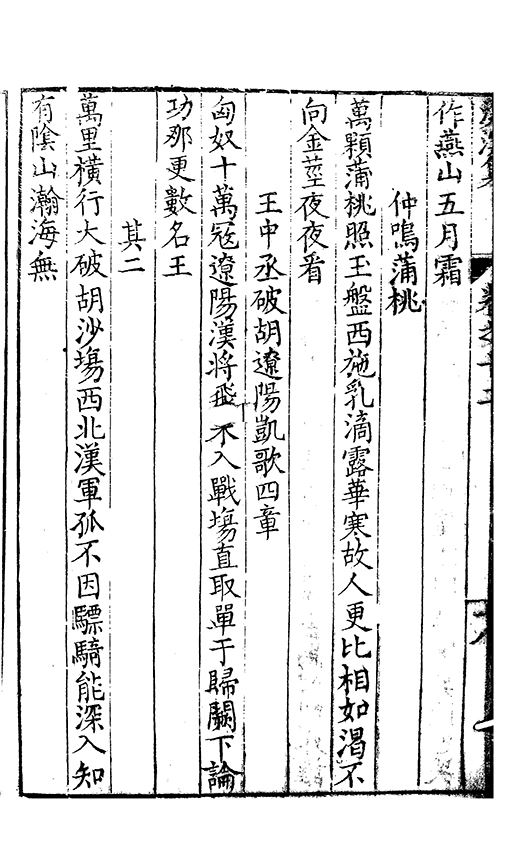 作燕山五月霜
仲鳴蒲桃
萬顆蒲桃照玉盤西施乳滴露華寒故人更比相如渴不
向金莖夜夜看
王中丞破胡遼陽凱歌四章
匈奴十萬寇遼陽漢將飛不入戰塲直取單于歸闕下論
功那更數名王
其二
萬里橫行大破胡沙塲西北漢軍孤不因驃騎能深入知
有陰山瀚海無